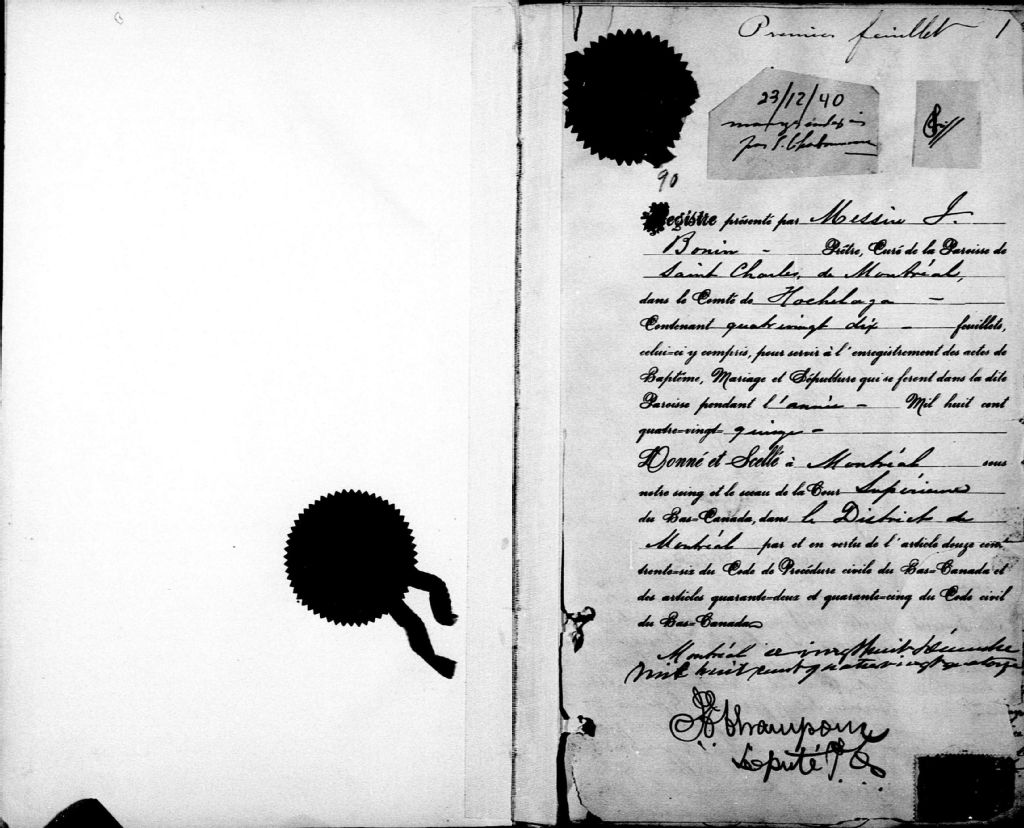 Premier feuillet 1
23/12/40
par J.
90
Registre présenté par Messire J.
Bonin - Prêtre, Curé de la Paroisse de
Saint Charles, de Montréal,
dans le Comté de Hochelaga -
Contenant quatrevingt dix - feuillets,
celui-ci y compris, pour servir à l'enregistrement des actes de
Baptême, Mariage et Sépulture qui se feront dans la dite
Paroisse pendant l'année - Mil huit cent
quatre-vingt- quinze -
Donné et Scellé à Montréal sous
notre seing et le sceau de la Cour Supérieure
du Bas-Canada, dans le District de
Montréal par et en vertu de l'article douze cent
trente-six du Code de Procédure civile du Bas-Canada et
des articles quarante-deux et quarante-cinq du Code civil
du Bas-Canada
Montréal ce vingthuit décembre
mil huit cent quatrevingt quatorze
Député P.